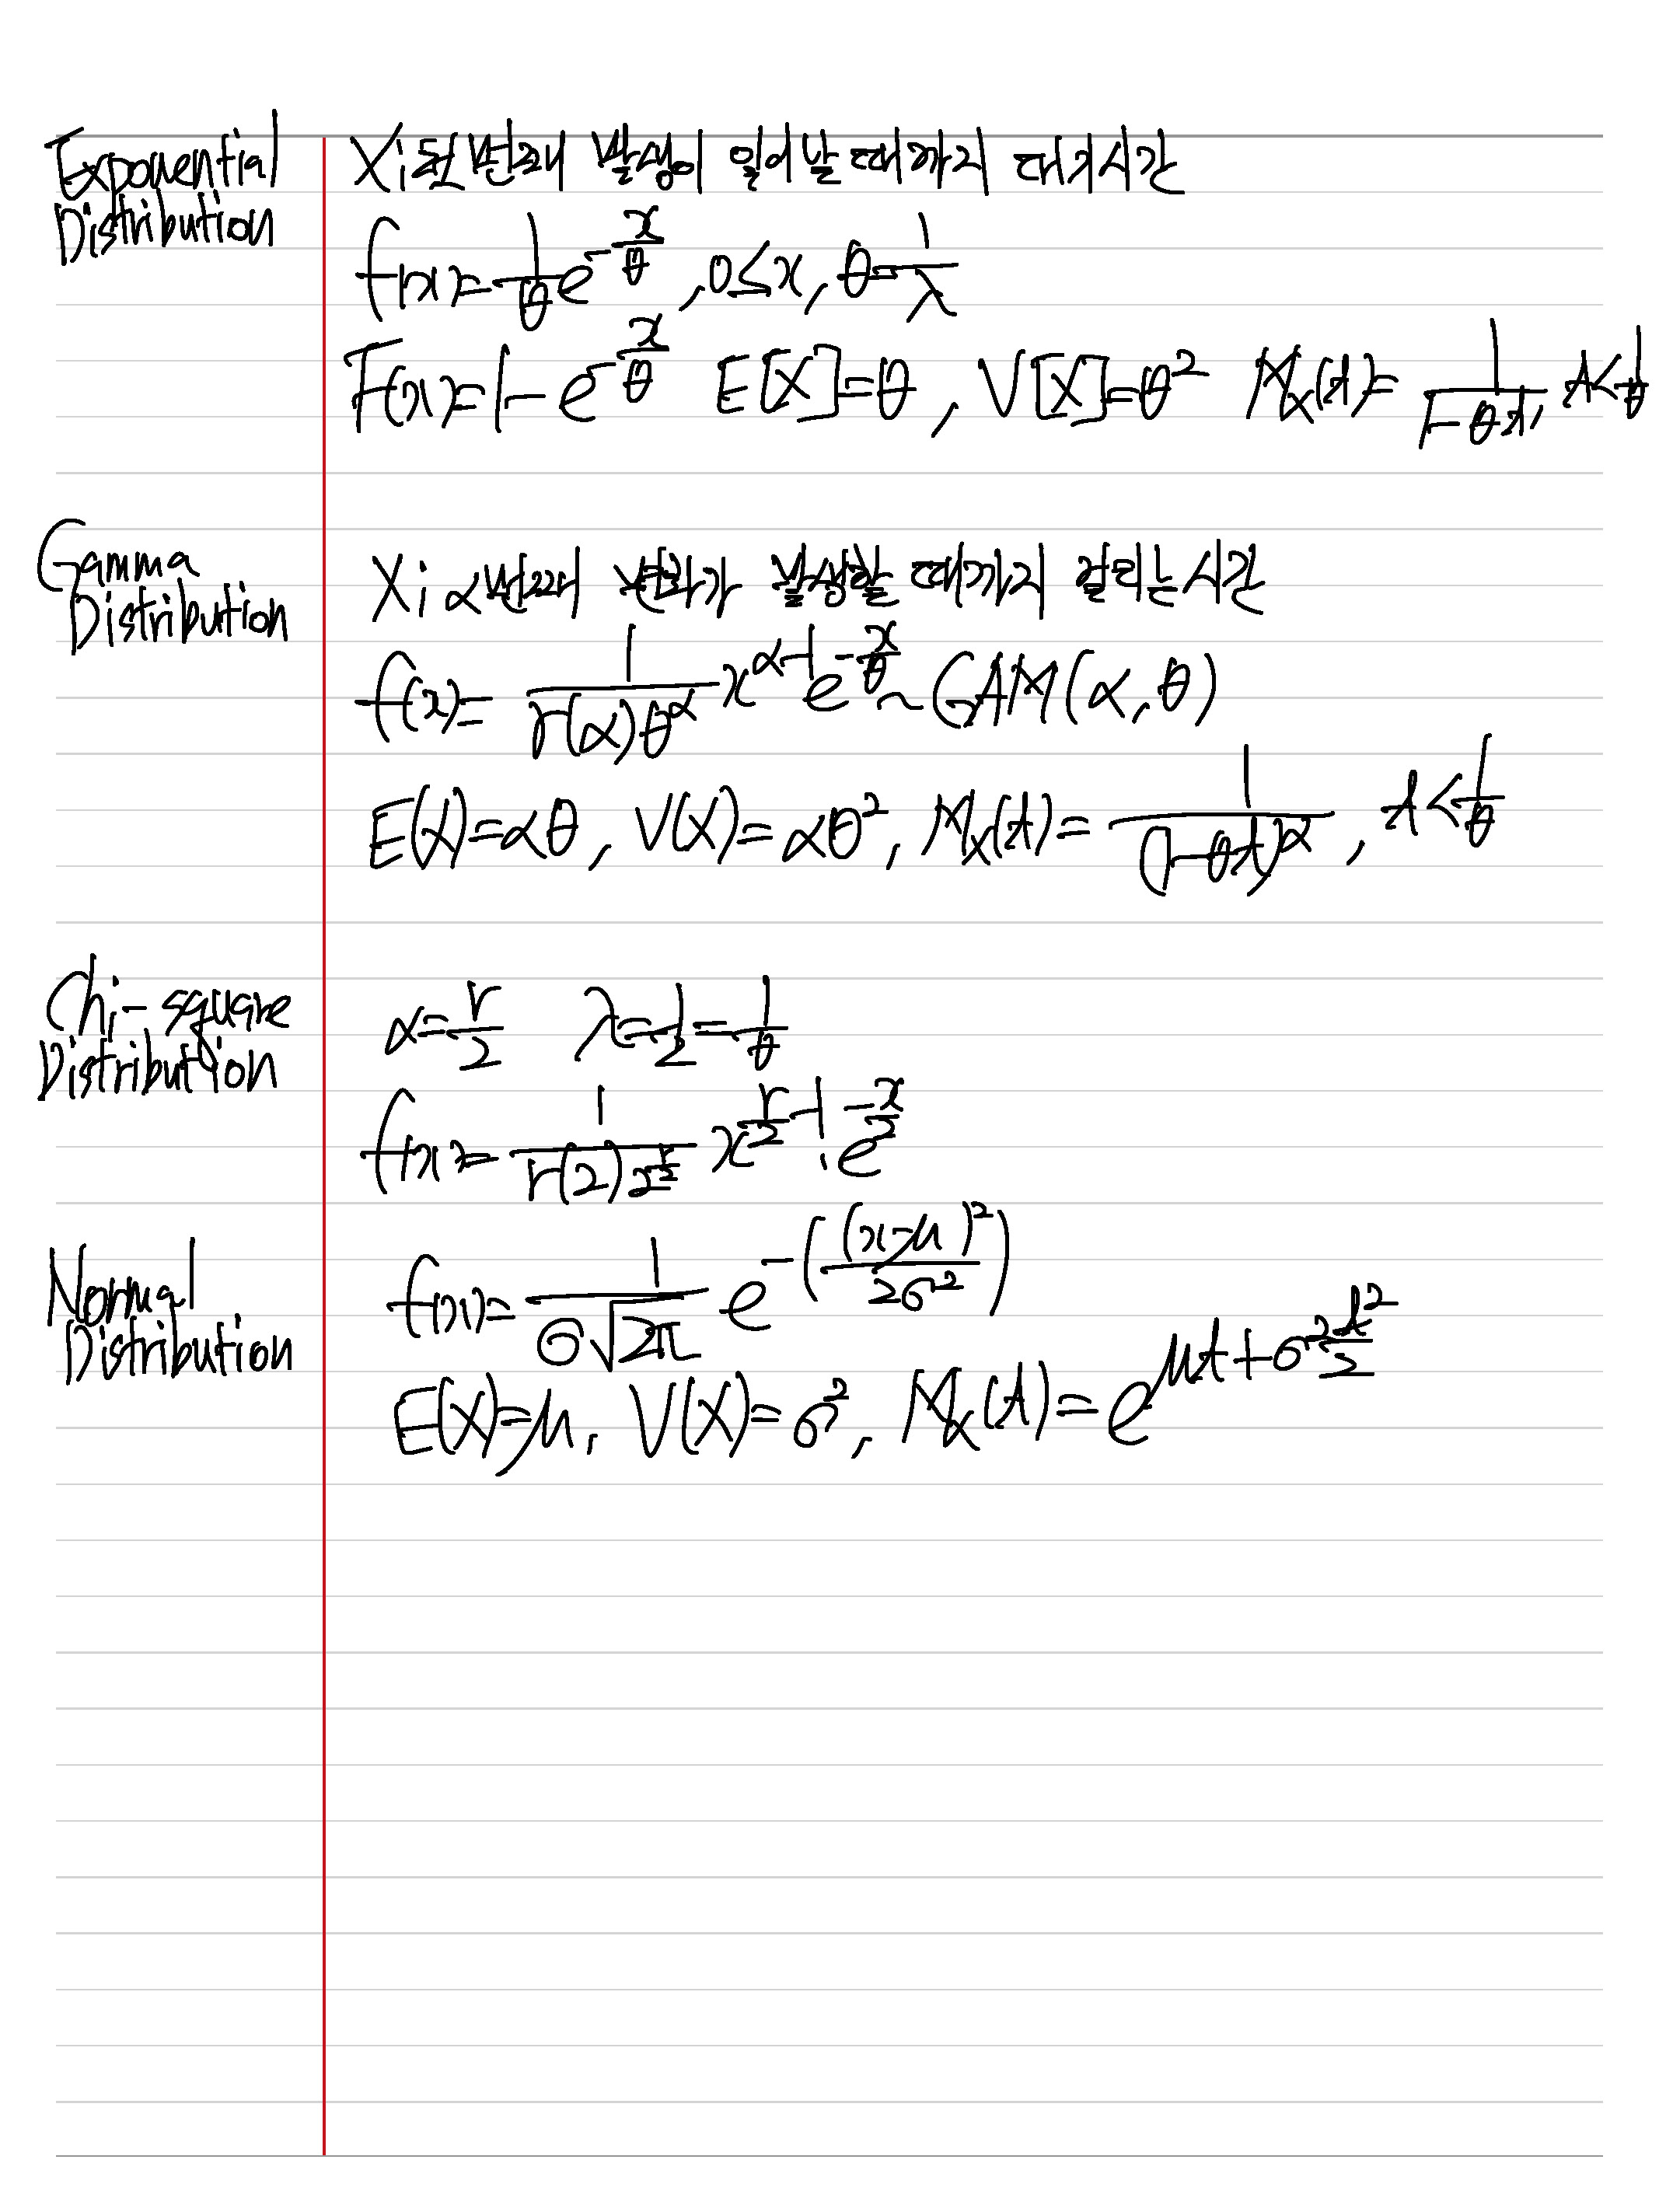 Exponential
Distribution
X: 첫 번째 발생이 일어날 때까지 대기시간
f(x)=1/θ e^(-x/θ), 0≤x, θ=1/λ
F(x)=1-e^(-x/θ) E[X]=θ, V[X]=θ² Mx(t)=1/(1-θt), t<1/θ
Gamma
Distribution
X: α번째 변화가 발생할 때까지 걸리는 시간
f(x)=1/(Γ(α)θ^α) x^(α-1) e^(-x/θ) ~ GAM(α, θ)
E(X)=αθ, V(X)=αθ², Mx(t)=1/(1-θt)^α, t<1/θ
Chi-square
Distribution
α=r/2 λ=1/2=1/θ
f(x)=1/(Γ(2)2^(r/2)) x^(r/2-1)·e^(-x/2)
Normal
Distribution
f(x)=1/(σ√2π) e^(-((x-μ)²/2σ²))
E(X)=μ, V(X)=σ², Mx(t)=e^(μt+σ²t²/2)